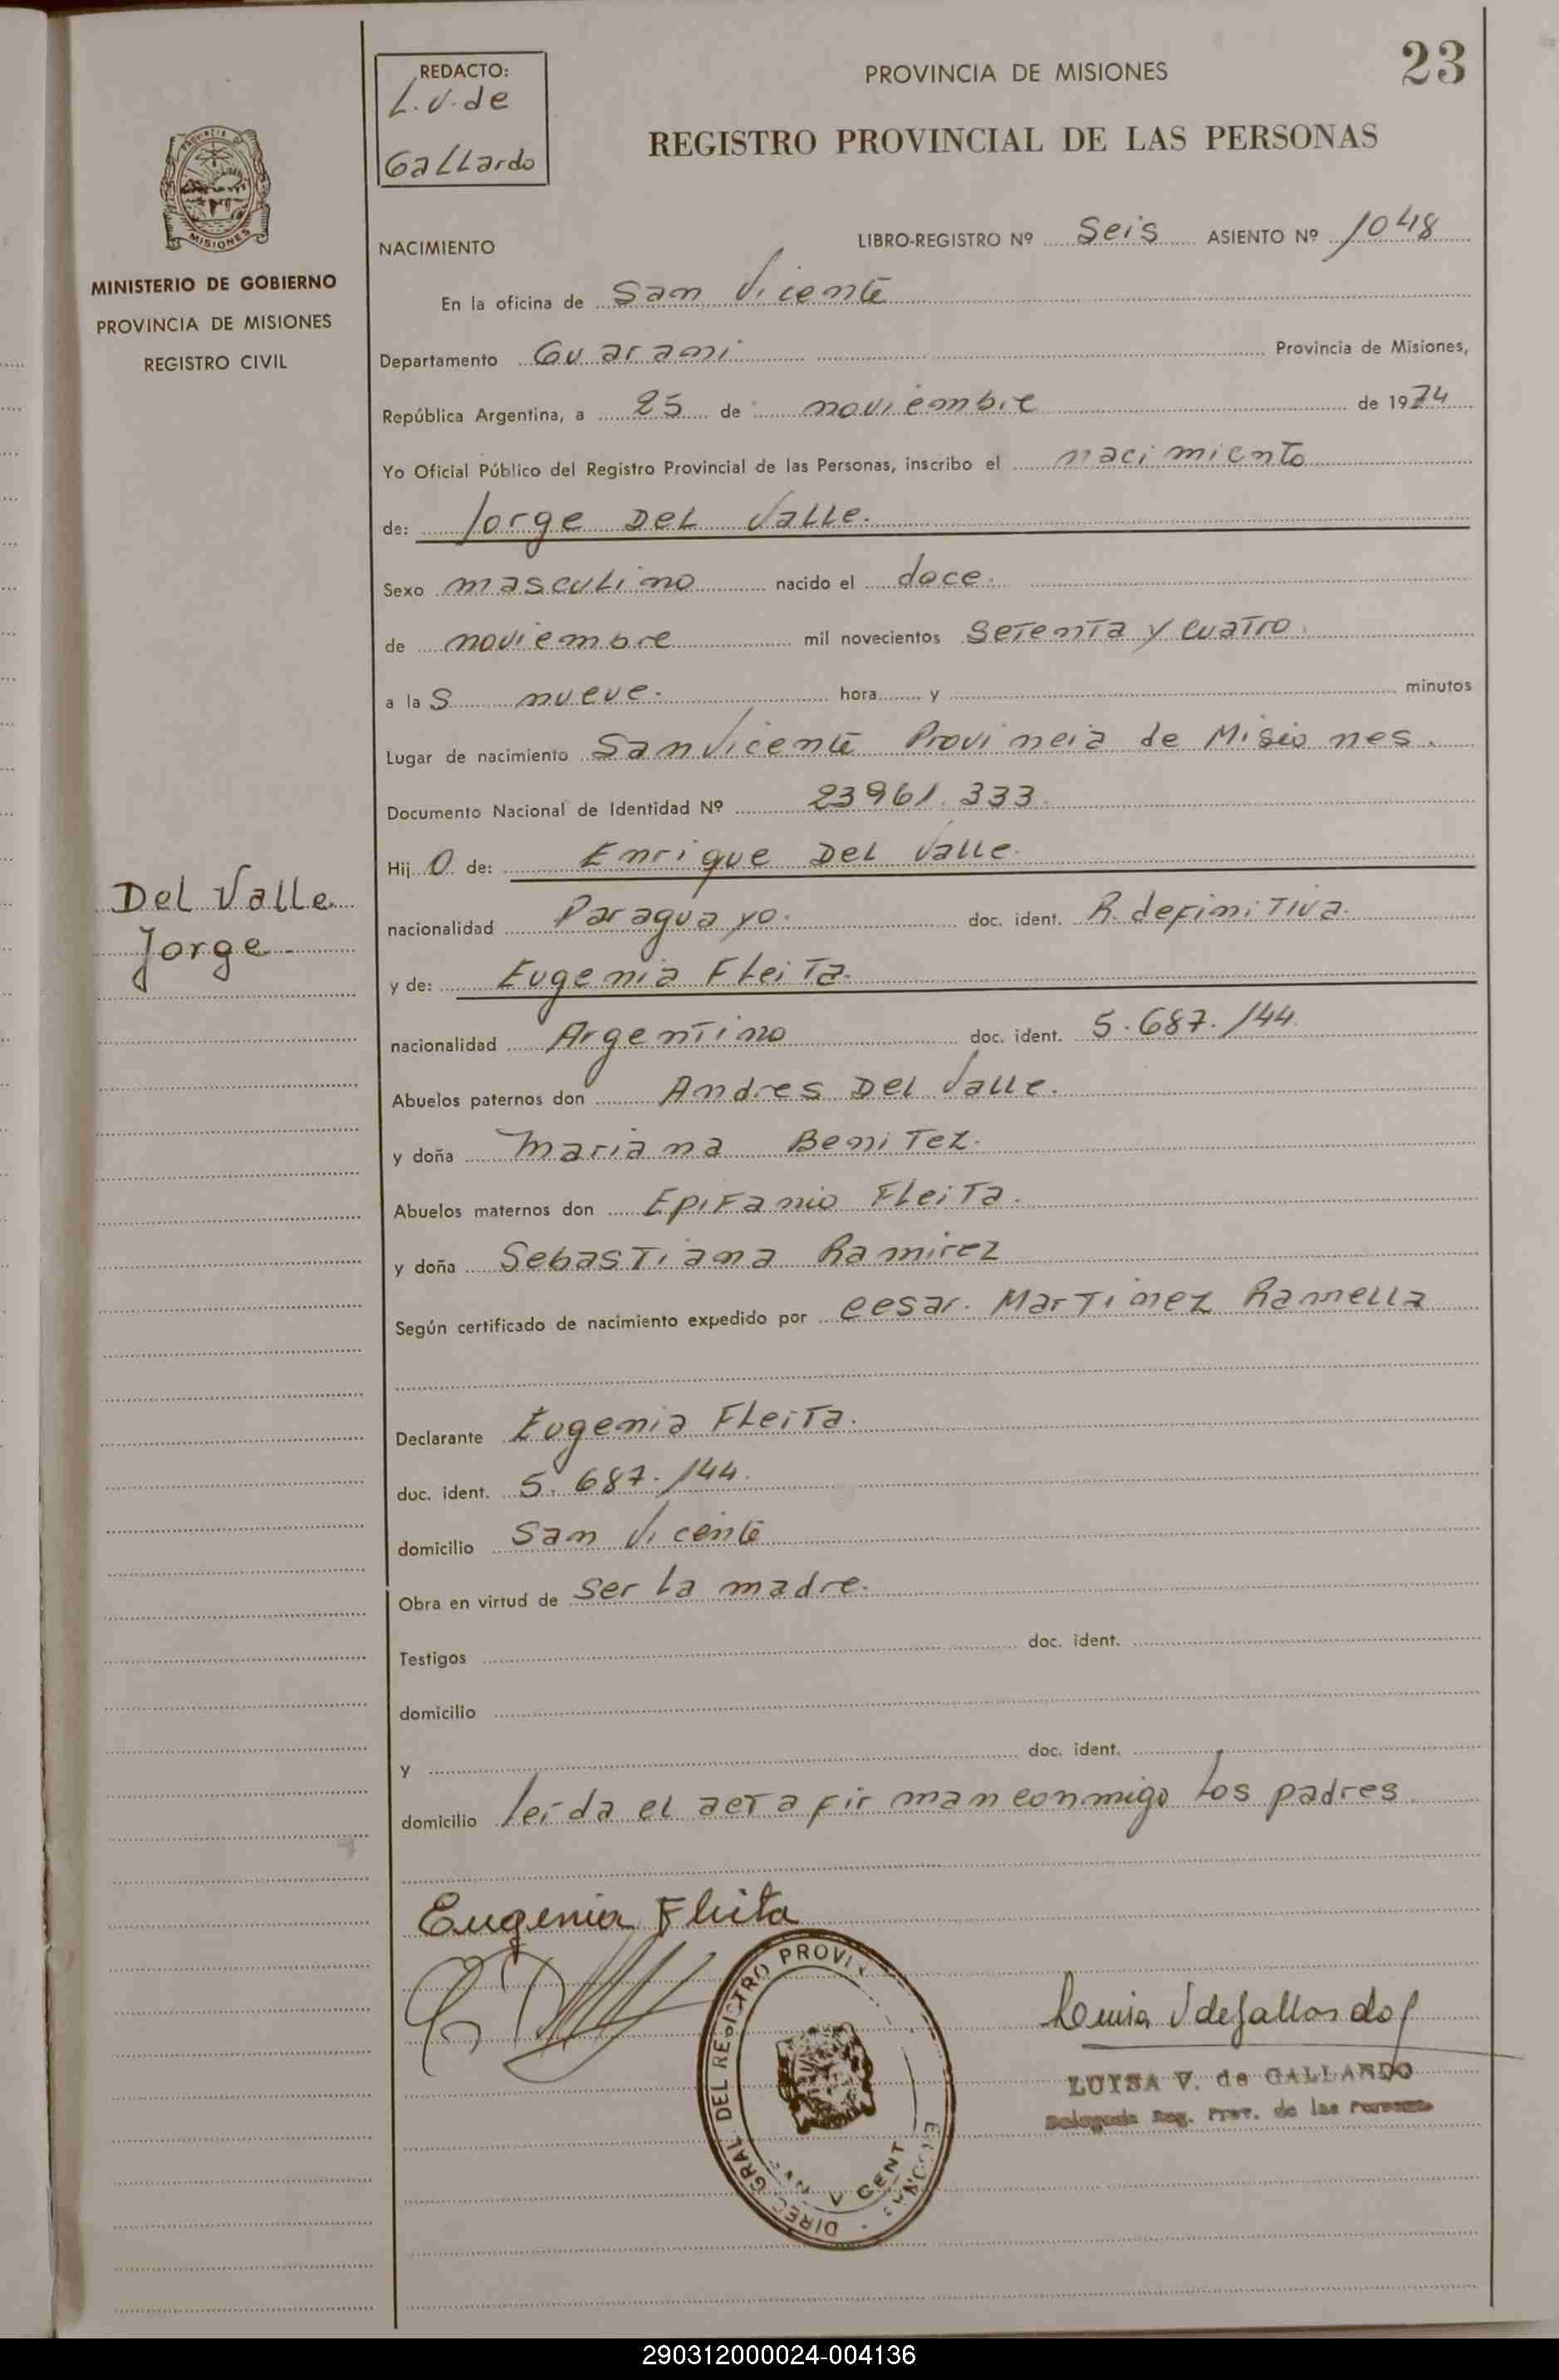 23
REDACTO:
L.V. de
Gallardo
PROVINCIA DE MISIONES
REGISTRO PROVINCIAL DE LAS PERSONAS
PROVINCIA DE
MISIONES
MINISTERIO DE GOBIERNO
PROVINCIA DE MISIONES
REGISTRO CIVIL
NACIMIENTO
LIBRO-REGISTRO Nº Seis ASIENTO Nº 1048
En la oficina de San Vicente
Departamento Guarani Provincia de Misiones,
República Argentina, a 25 de noviembre de 1974
Yo Oficial Público del Registro Provincial de las Personas, inscribo el nacimiento
de: Jorge Del Valle.
Sexo masculino nacido el doce.
de noviembre mil novecientos setenta y cuatro.
a las nueve. hora y minutos
Lugar de nacimiento San Vicente Provincia de Misiones.
Documento Nacional de Identidad Nº 23961.333.
Hijo de: Enrique Del Valle.
Del Valle
Jorge
nacionalidad Paraguayo. doc. ident. R. definitiva.
y de: Eugenia Fleita.
nacionalidad Argentino doc. ident. 5.687.144.
Abuelos paternos don Andres Del Valle.
y doña Mariana Benitez.
Abuelos maternos don Epifanio Fleita.
y doña Sebastiana Ramirez
Según certificado de nacimiento expedido por Cesar. Martinez Ramella
Declarante Eugenia Fleita.
doc. ident. 5.687.144.
domicilio San Vicente
Obra en virtud de ser la madre.
Testigos doc. ident.
domicilio
y doc. ident.
domicilio leida el acta firman conmigo los padres.
Eugenia Fleita
DIREC. GRAL. DEL REGISTRO PROVI
Luisa V de Gallardo
LUISA V. de GALLARDO
Delegada Reg. Prov. de las Personas
290312000024-004136